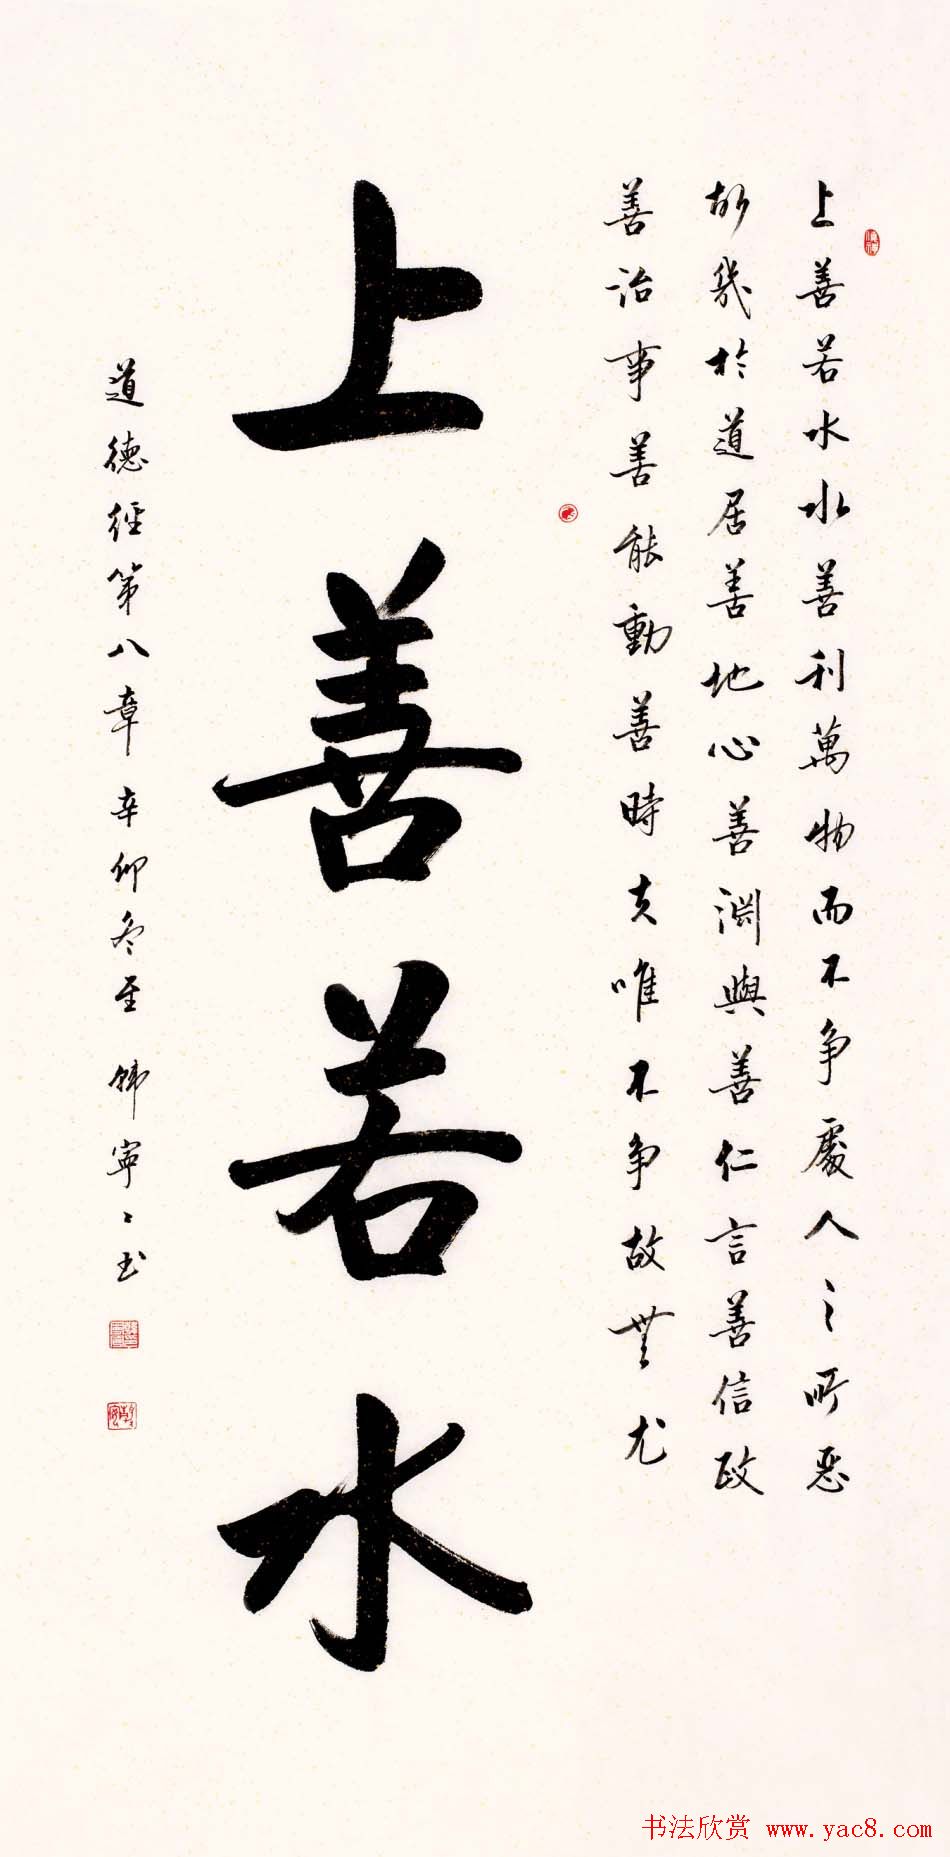 上善若水水善利萬物而不争處人之所惡
故幾於道居善地心善淵與善仁言善信政
善治事善能動善時夫唯不争故無尤
上善若水
道德經第八章辛卯冬至 韩寧〻书
书法欣赏 www.yac8.com